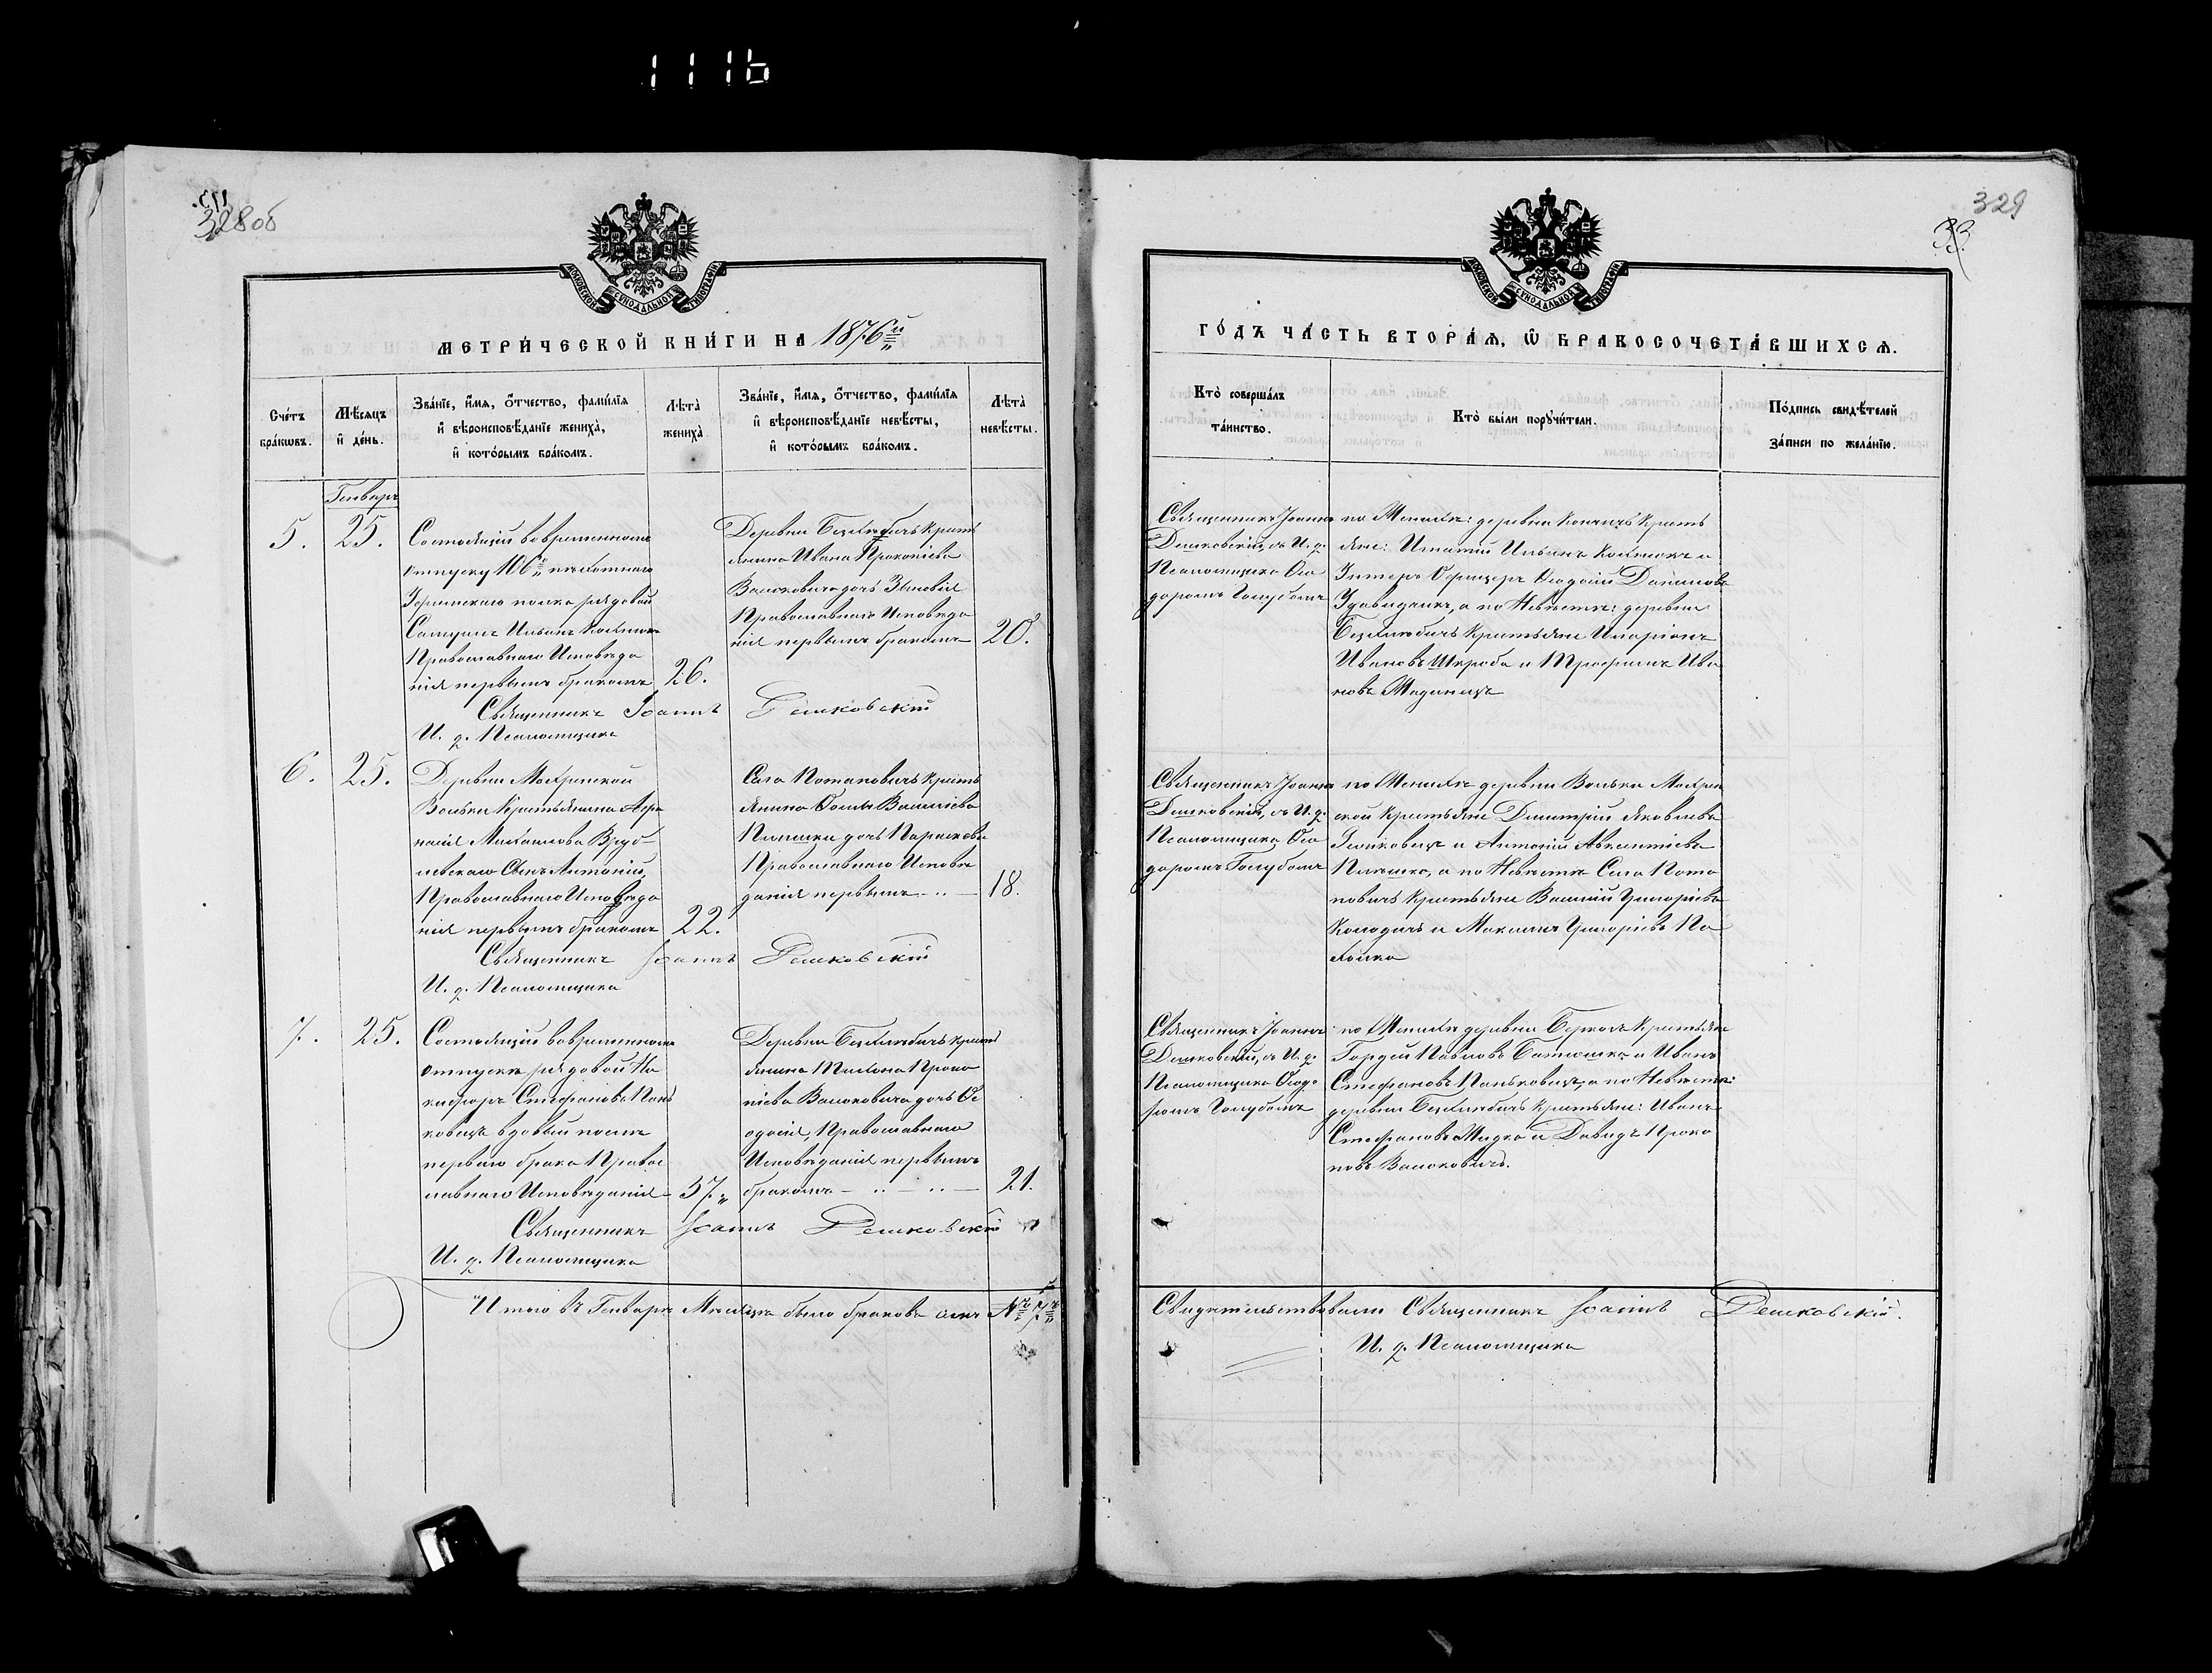 1116
328 об
329
33
МОСКОВСКОЙ СУНОДАЛЬНОЙ ТИПОГРАФІИ
МЕТРИ́ЧЕСКОЙ КНИ́ГИ НА 1876й
Сче́тъ бра́кѡвъ.
Мѣ́сяцъ и҆ де́нь.
Зва́нїе, и҆́мѧ, ѻ҆́тчество, фами́лїѧ
и҆ вѣроисповѣ́данїе жениха̀,
и҆ кото́рымъ бра́комъ.
Лѣта̀ жениха̀.
Зва́нїе, и҆́мѧ, ѻ҆́тчество, фами́лїѧ
и҆ вѣроисповѣ́данїе невѣ́сты,
и҆ кото́рымъ бра́комъ.
Лѣта̀ невѣ́сты.
Генварь
5.
25.
Состоящій во временномъ
отпуску 106го пѣхотнаго
Уфимскаго полка рядовой
Самуилъ Ильинъ
Православнаго Исповѣда
нія первымъ бракомъ
26.
Деревни Бездѣжичъ Кресть
янина Ивана Прокопіева
Валюковича дочь Зѣновія
Православнаго Исповѣда
нія первымъ бракомъ
20.
Священникъ Іоаннъ Демковскій
И. д. Псаломщика
6.
25.
Деревни Мохринской
Вольки Крестьянина Афа
насія Михаилова Вруб-
левскаго Сынъ Антоній,
Православнаго Исповѣда
нія первымъ бракомъ
22.
Села Потаповичъ Кресть
янина Ѳомы Василіева
дочь Параскева
Православнаго Исповѣ
данія первымъ — „ —
18.
Священникъ Іоаннъ Демковскій
И. д. Псаломщика
7.
25.
Состоящій во временномъ
отпускѣ рядовой Ни
кифоръ Стефановъ Пань
ковецъ вдовый послѣ
перваго брака Правос
лавнаго Исповѣданія
37.
Деревни Бездѣжичъ Кресть
янина Тихона Проко
піева Валюковича дочь Ѳе
одосія, Православнаго
Исповѣданія первымъ
бракомъ — „ — „ —
21.
Священникъ Іоаннъ Демковскій
И. д. Псаломщика
Итого въ Генварѣ Мѣсяцѣ было браковъ семь № 7й
МОСКОВСКОЙ СУНОДАЛЬНОЙ ТИПОГРАФІИ
ГО́ДЪ ЧА́СТЬ ВТОРА́Ѧ, Ѡ҆ БРАКОСОЧЕТА́ВШИХСѦ.
Кто̀ соверша́лъ
та́инство.
Кто̀ бы́ли порꙋчи́тели.
По́дпись свидѣ́телей
за́писи по жела́нїю.
Священникъ Іоаннъ
Демковскій, съ И. д.
Псаломщика Ѳео
доромъ Голубомъ
по Женихѣ: деревни Кресть
яне: Игнатій Ильинъ и
Унтеръ Офицеръ Ѳеодосій Даниловъ
а по Невѣстѣ: деревни
Бездѣжичъ Крестьяне Иларіонъ
Ивановъ Шкроба и Трофимъ Ива
новъ Мадинецъ
Священникъ Іоаннъ
Демковскій, съ И. д.
Псаломщика Ѳео
доромъ Голубомъ
по Женихѣ деревни Вольки Мохрин
ской Крестьяне Димитрій Яковлевъ
и Антоній Авксентіевъ
а по Невѣстѣ Села Пота
повичъ Крестьяне Василій Григоріевъ
Колодичъ и Максимъ Григоріевъ
Священникъ Іоаннъ
Демковскій, съ И. д.
Псаломщика Ѳеодо
ромъ Голубомъ
по Женихѣ деревни Крестьяне
Гордей Павловъ и Иванъ
Стефановъ Паньковецъ, а по Невѣстѣ:
деревни Бездѣжичъ Крестьяне: Иванъ
Стефановъ и Давидъ Проко
повъ Валюковичъ.
Свидѣтельствовали Священникъ Іоаннъ Демковскій.
И. д. Псаломщика